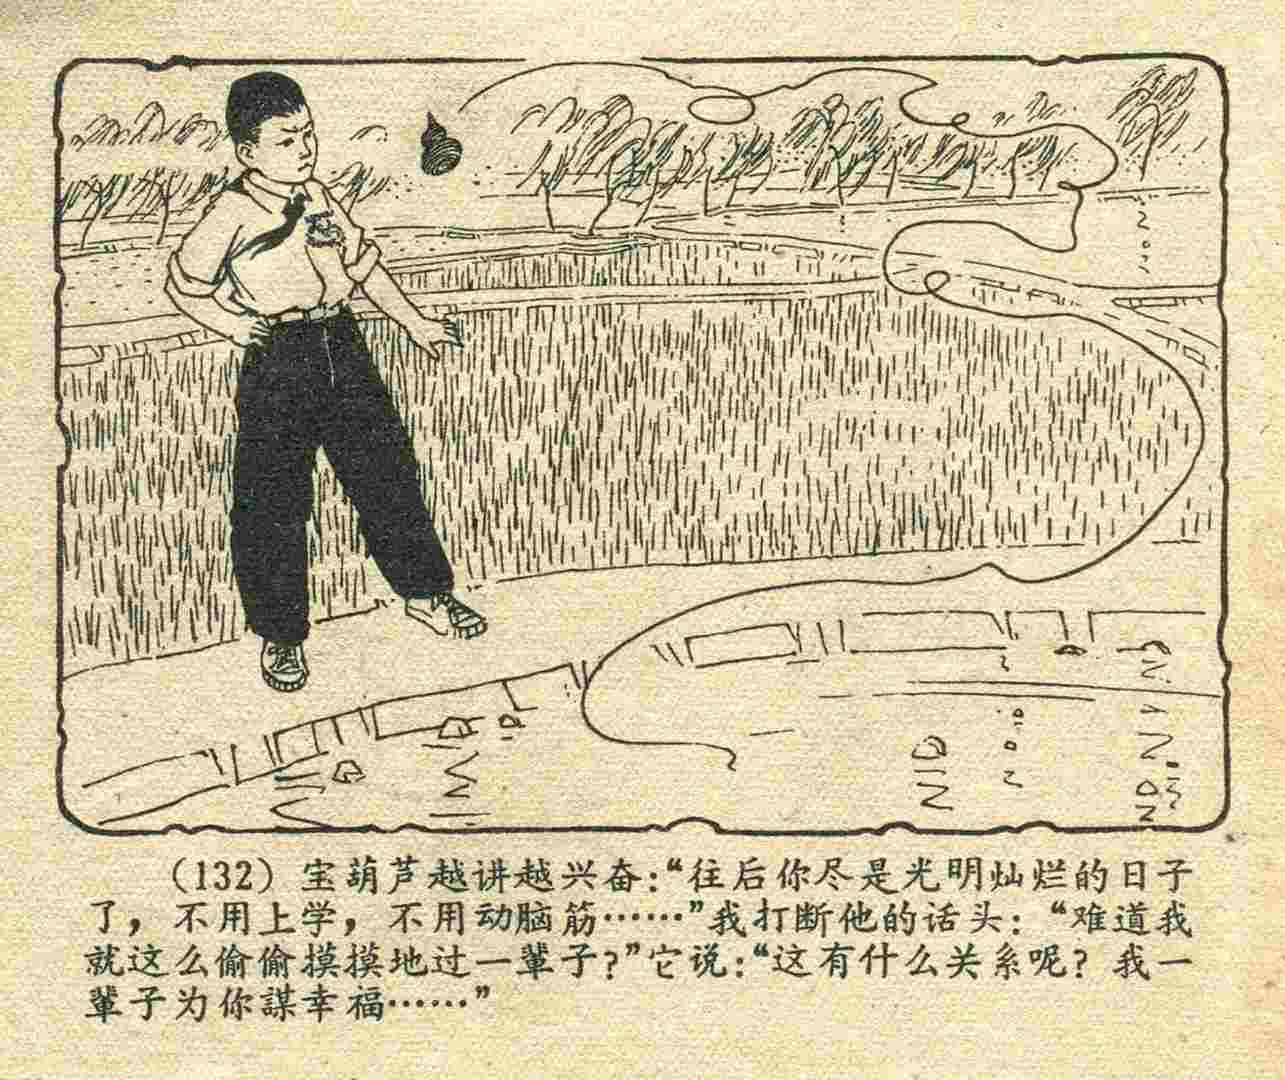 (132) 宝葫芦越讲越兴奋:“往后你尽是光明灿烂的日子
了，不用上学，不用动脑筋……”我打断他的话头：“难道我
就这么偷偷摸摸地过一辈子?”它说:“这有什么关系呢? 我一
辈子为你謀幸福……”